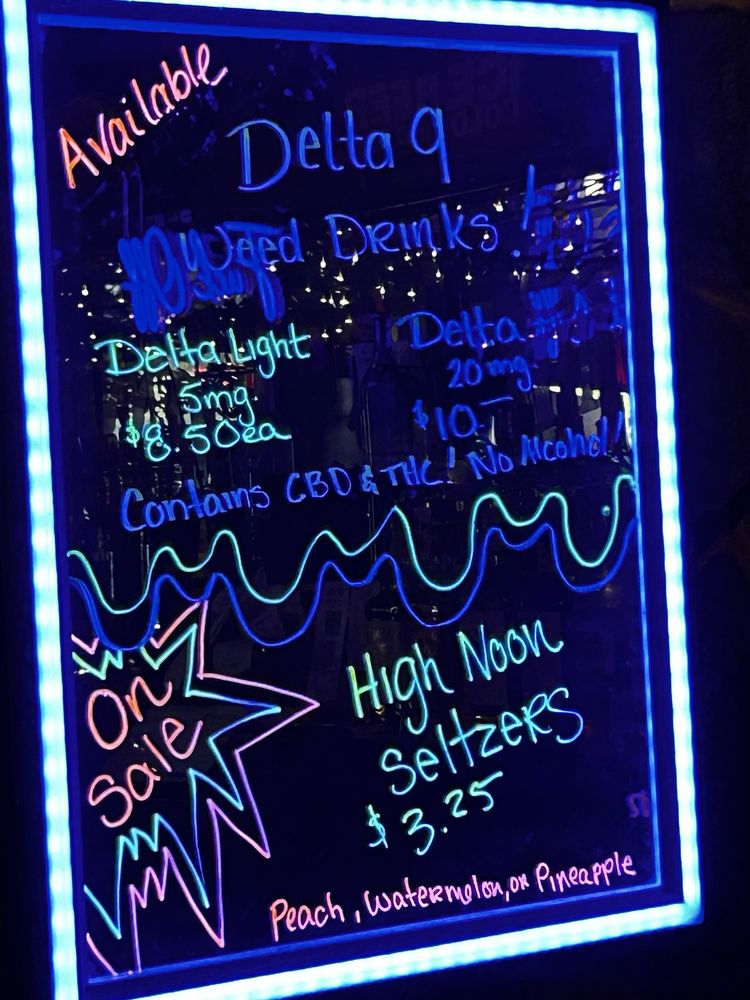 Available
Delta 9
Weed Drinks!
Delta Light
5mg
$8.50ea
Delta
20mg
$10-
Contains CBD & THC! No Alcohol!
On
Sale
High Noon
Seltzers
$3.25
Peach, Watermelon, or Pineapple